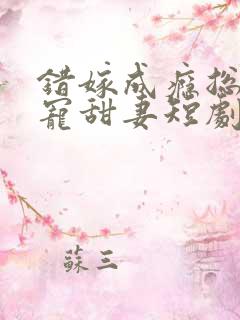 錯嫁成癮總
寵甜妻短劇
蘇三